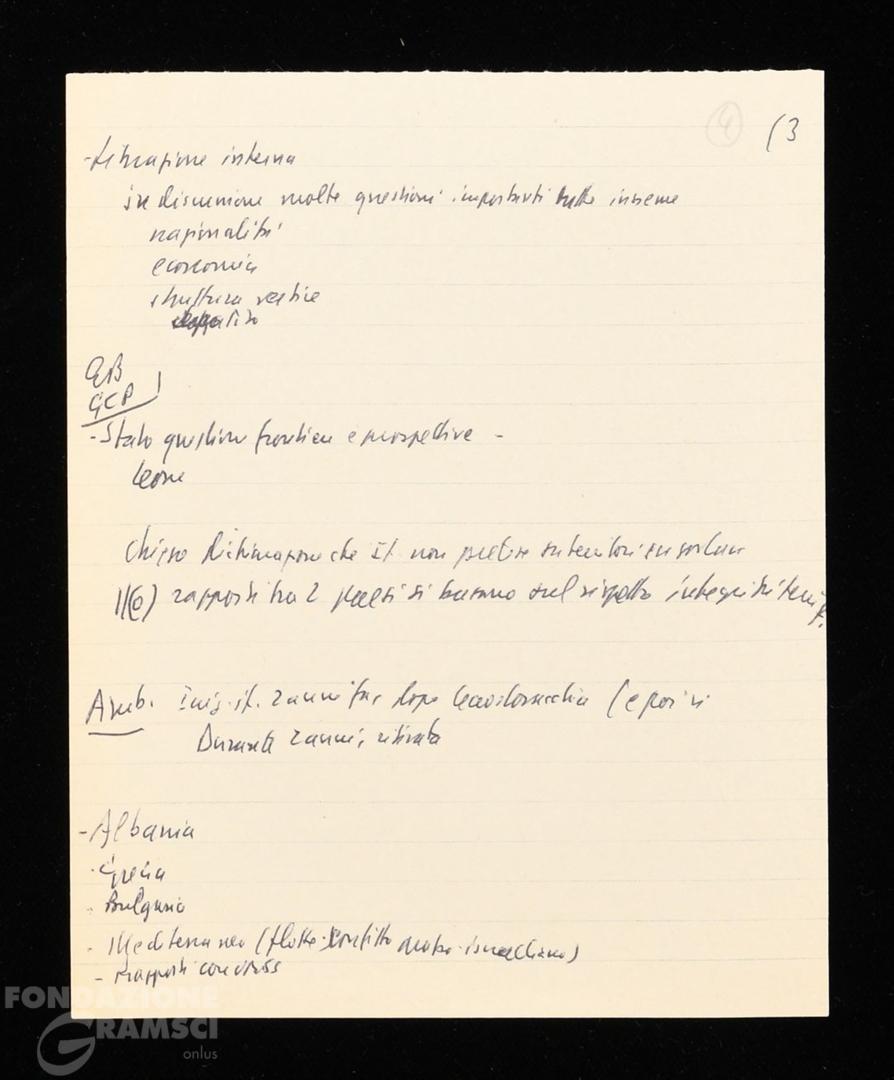 (4) (3
- Situazione interna
in discussione molte questioni importanti tutte insieme
nazionalità
economia
struttura vertice
GB
GCP
- Stato questione frontiere e prospettive -
Leone
Chiesto dichiarazione che It. non
rapporti tra 2 paesi si basano sul rispetto integrità territ.
Amb. It. 2 anni fa, dopo Cecoslovacchia (e poi
Durante 2 anni, ritirata
- Albania
- Grecia
- Bulgaria
- Mediterraneo (flotte - conflitto arabo-israeliano)
- Rapporti con URSS
FONDAZIONE
GRAMSCI
onlus